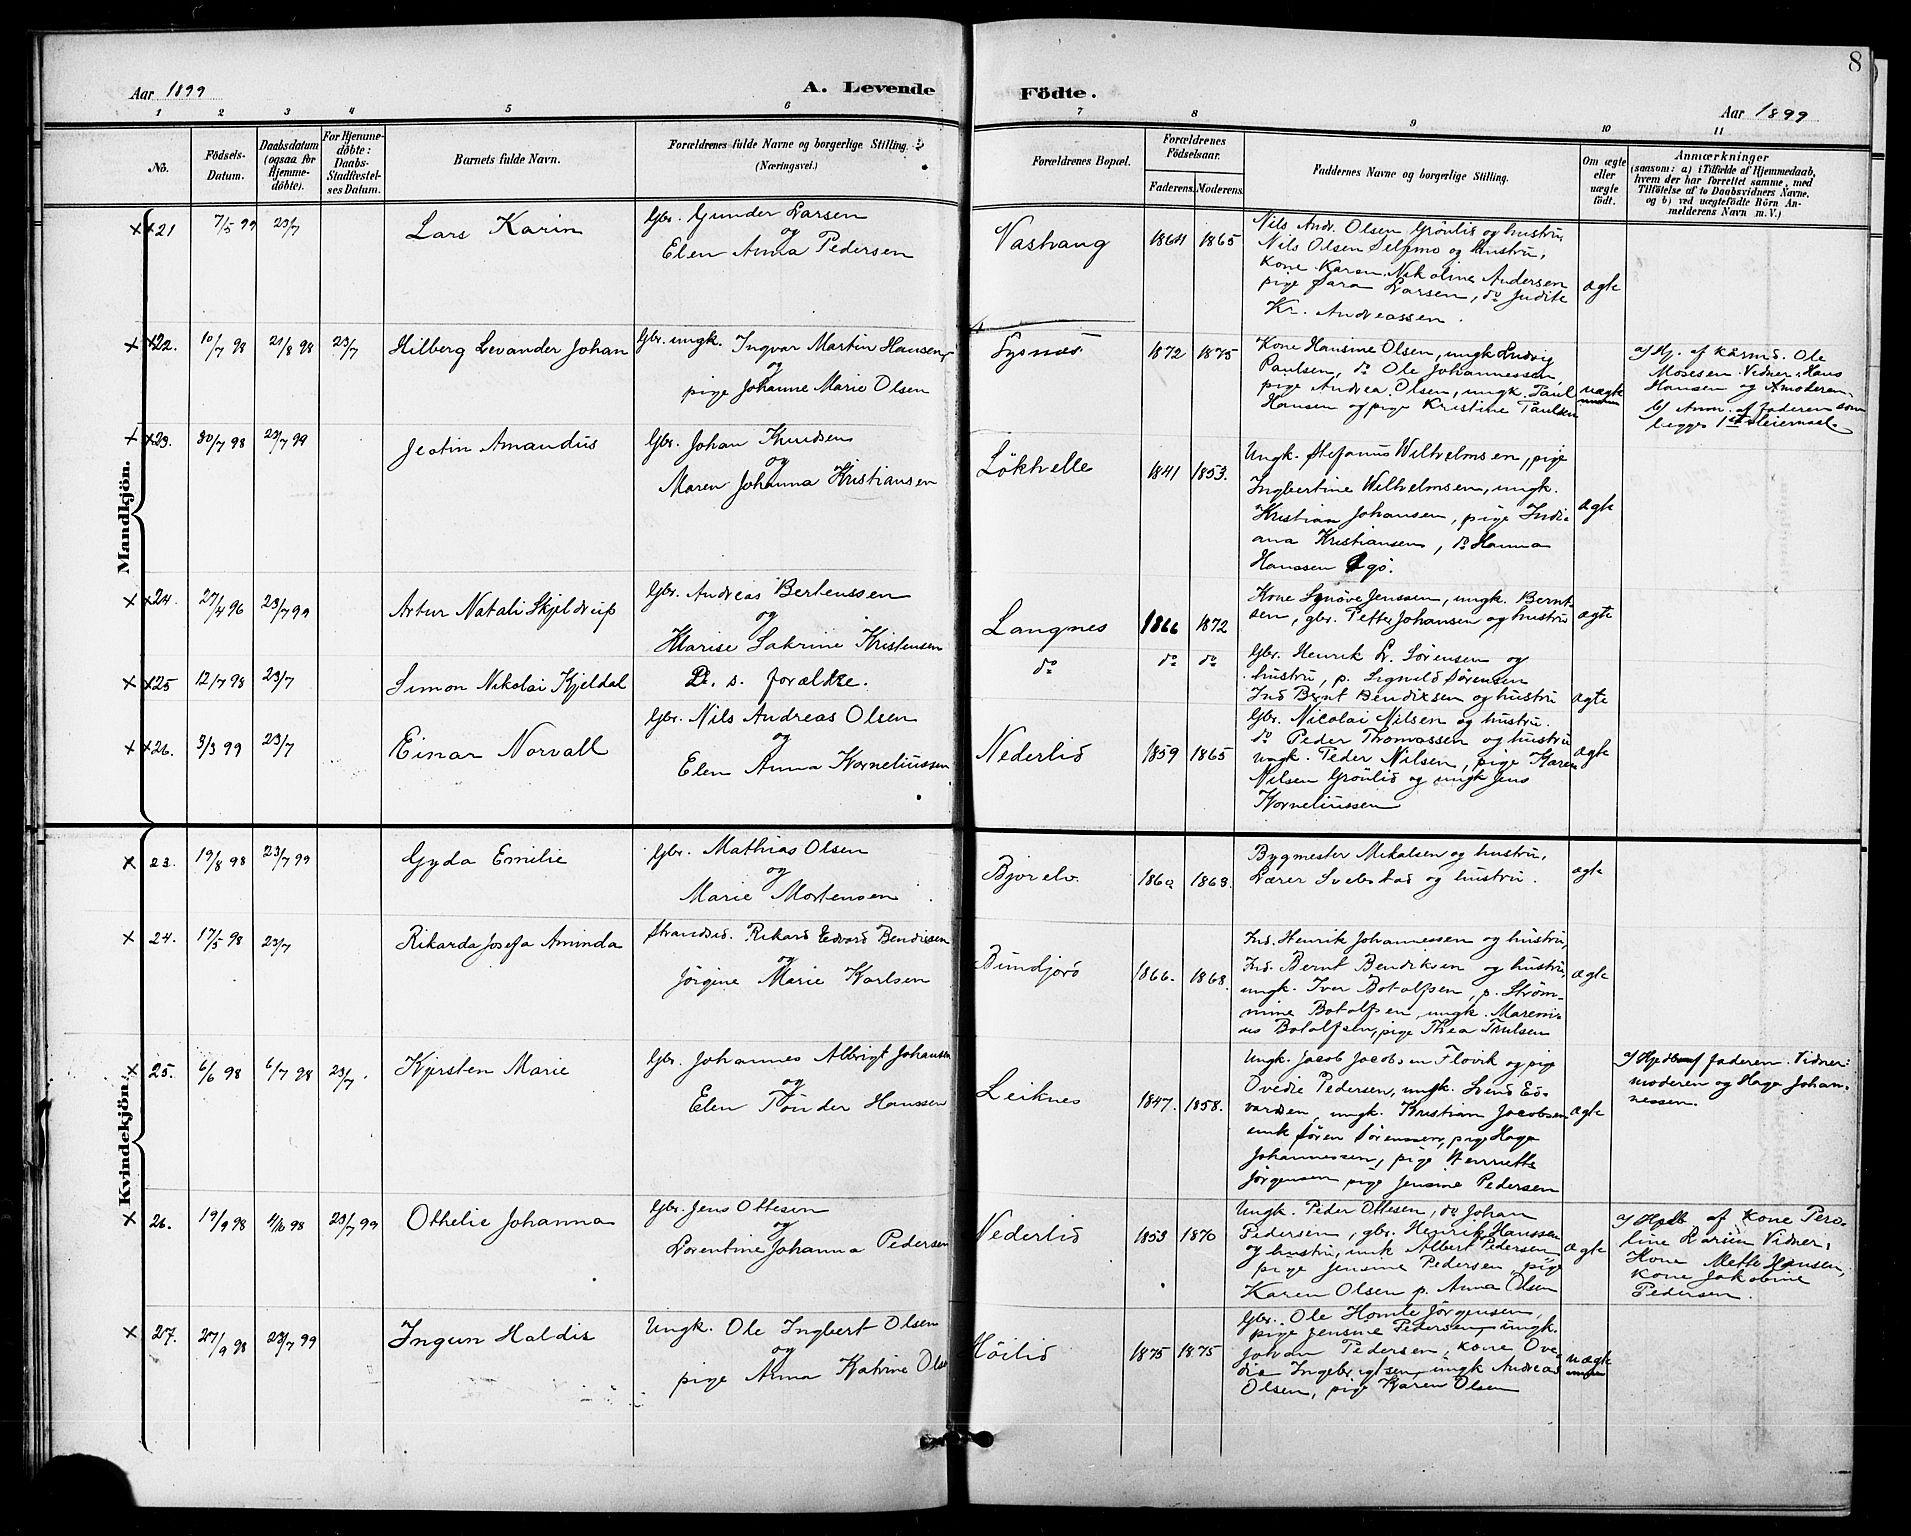 8
Aar 1899
A. Levende Födte.
Aar 1899
1 2 3 4 5 6 7 8 9 10 11
No.
Födsels-Datum.
Daabsdatum (ogsaa for Hjemmedöbte).
For Hjemmedöbte: Daabs-Stadfæstelses Datum.
Barnets fulde Navn.
Forældrenes fulde Navne og borgerlige Stilling. (Næringsvei.)
Forældrenes Bopæl.
Forældrenes Födselsaar.
Faderens. Moderens.
Faddernes Navne og borgerlige Stilling.
Om ægte eller uægte födt.
Anmærkninger
(saasom: a) i Tilfælde af Hjemmedaab,
hvem der har forrettet samme, med
Tilföielse af to Daabsvidners Navne.
og b) ved uægtefödte Börn Anmelderens Navn m. V.)
Mandkjön.
21 7/5 99 23/7
Lars Karin
Gbr. Gunder Larsen
og
Elen Anna Pedersen
1864 1865
Nils Andr. Olsen Grönlid og hustru,
Nils Olsen Selfmo og hustru,
Kone Karen Nikoline Andersen
pige Sara Larsen, do Judite
Kr. Andreassen.
ægte
22. 10/7 98 21/8 98 23/7
Hilberg Levander Johan
Gbr. ungk. Ingvar Martin Hansen
og
pige Johanne Marie Olsen
Lysnes
1872 1875
Kone Hansine Olsen, ungk Ludvig
Paulsen, do Ole Johannessen,
pige Andrea Olsen, ungk. Paul
Hansen og pige Kristine Paulsen
uægte
a) Hj. af Kårmd. Ole
Mosesen. Vidner: Hans
Hansen og Amoderen.
b) Anm. af faderen som
begges 1ste leiermaal.
23. 30/7 98 23/7 99
Jestin Amandus
Gbr. Johan Knudsen
og
Maren Johanna Kristiansen
Lökhelle
1841 1853.
Ungk. Stefanus Wilhelmsen, pige
Ingbertine Wilhelmsen, ungk.
Kristian Johansen, pige Indi
ana Kristiansen, do Hanna
Hanssen
ægte
24. 27/4 96 23/7 99
Artur Natali Skjeldrup
Gbr. Andreas Bertenssen
og
Marise Sakrine Kristensen
Langnes
1866 1872
Kone Synöve Jenssen, ungk. Bernt-
sen, gbr. Petter Johansen og hustru
ægte
25 12/7 98 23/7
Simon Nikolai Kjeldal
D. s. forældre.
do do do
Gbr. Henrik L. Sörensen og
hustru, p. Signild Sörensen
Ind Bernt Bendixsen og hustru
ægte
26. 3/3 99 23/7
Einar Norvall
Gbr. Nils Andreas Olsen
og
Elen Anna Korneliussen
Nederlid
1859 1865
Gbr. Nicolai Nilsen og hustru.
do Peder Thomassen og hustru
ungk. Peder Nilsen, pige Karen
Nilsen Grönlid og ungk Jens
Korneliussen
ægte
Kvindekjön.
23. 19/8 98 23/7 99
Gyda Emilie
Gbr. Mathias Olsen
og
Marie Mortensen
Bjorelv
1860 1863.
Bygmester Mikalsen og hustru,
Lærer Svebstad og hustru.
ægte
24. 17/5 98 23/7
Rikarda Josefa Aminda
Strandsid. Rikard Edvard Bendixsen
og
Jörgine Marie Karlsen
1866. 1868.
Ind. Henrik Johannessen og hustru,
Ind. Bernt Bendiksen og hustru,
ungk. Iver Botolfsen, p. Ström-
mine Botolfsen, ungk. Mareni-
us Botolfsen, pige Thea Trulsen
ægte
25. 6/6 98 6/7 98 23/7.
Kjersten Marie
Gbr. Johannes Albrigt Johansen
og
Elen Tönder Hanssen
Leiknes
1847. 1858.
Ungk. Jacob Jacobsen Flovik og pige
Ovedie Pedersen, ungk. Svend Ed-
vardsen, ungk. Kristian Jacobsen
unk Sören Sörenssen, pige Haga
Johannessen, pige Henriette
Jörgensen pige Jensine Pedersen
ægte
a) Hjdb af faderen. Vidner:
moderen og Haga Johan-
nessen.
26. 19/9 98 4/10 98 23/7 99
Othelie Johanna
Gbr. Jens Ottesen
og
Lorentine Johanna Pedersen
Nederlid
1853 1870
Ungk. Peder Ottesen, do Johan
Pedersen, gbr. Henrik Hanssen
og hustru, unk Albert Pedersen
pige Jensine Pedersen, pige
Karen Olsen p. Anna Olsen
ægte
a) Hjdb af kone Pero-
line Larsen Vidner:
Kone Mette Hansen,
Kone Jakobine
Pedersen.
27. 27/9 98 23/7 99
Ingun Haldis
Ungk. Ole Ingbert Olsen
og
pige Anna Katrine Olsen
Höilid
1875 1875
Gbr. Ole Homle Jörgensen,
pige Jensine Pedersen, ungk.
Johan Pedersen, kone Ove-
dia Ingebrigtsen, ungk Andreas
Olsen, pige Karen Olsen
uægte